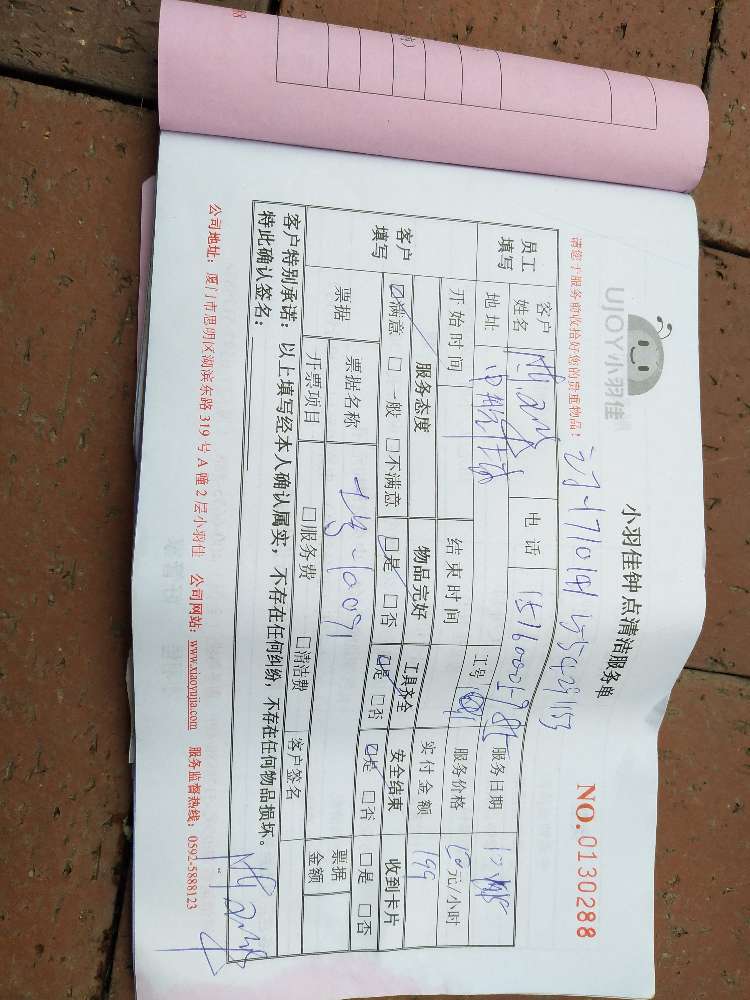 UJOY小羽佳
小羽佳钟点清洁服务单
NO.0130288
请您于服务前收拾好您的贵重物品!
员工填写
客户姓名
电话
服务日期
地址
工号
服务价格
元/小时
开始时间
结束时间
实付金额
199
客户填写
服务态度
物品完好
工具齐全
安全结束
收到卡片
☑满意 □一般 □不满意
☑是 □否
☑是 □否
☑是 □否
□是 □否
票据
票据名称
票据金额
开票项目
□服务费
□清洁费
客户签名
客户特别承诺:以上填写经本人确认属实,不存在任何纠纷,不存在任何物品损坏。
特此确认签名:
公司地址:厦门市思明区湖滨东路319号A幢2层小羽佳 公司网站:www.xiaoyujia.com 服务监督热线:0592-5888123